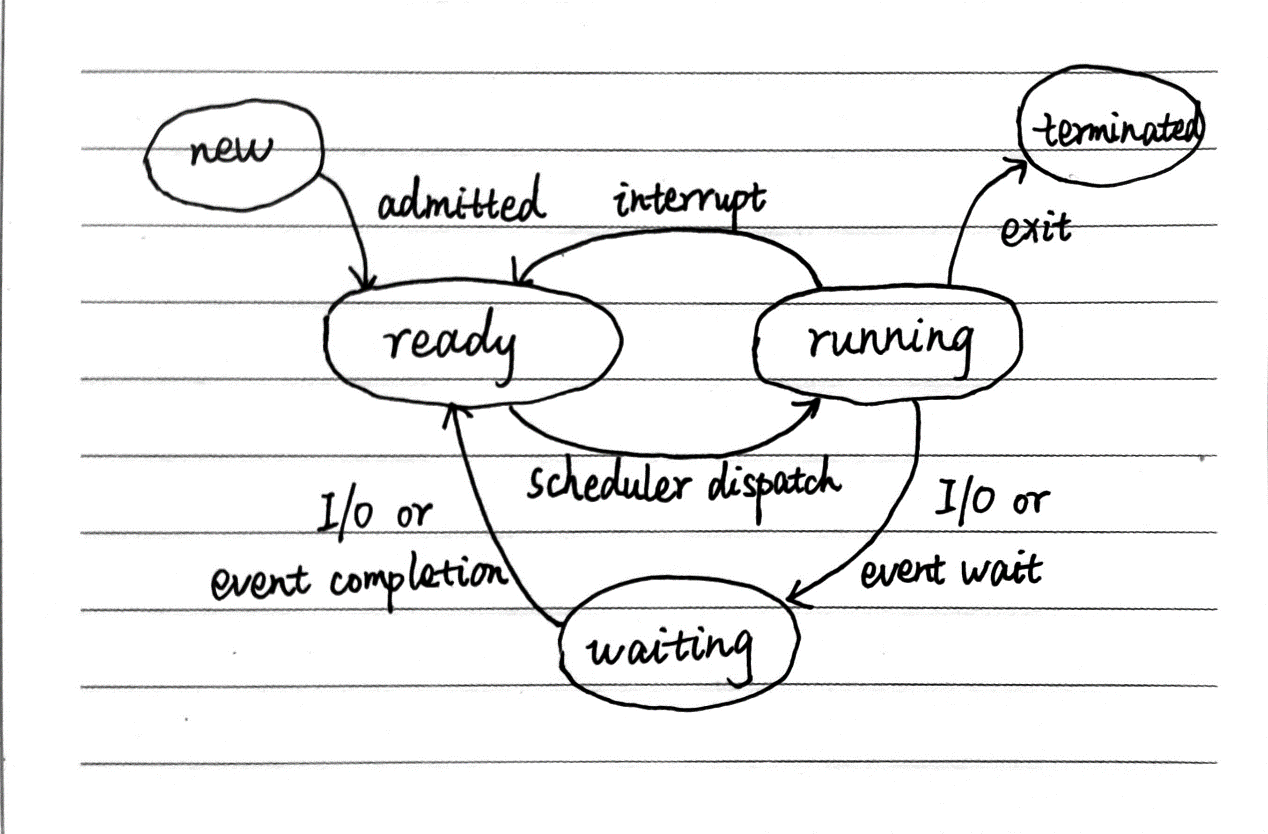 new
terminated
admitted
interrupt
exit
ready
running
scheduler dispatch
I/O or
event completion
I/O or
event wait
waiting